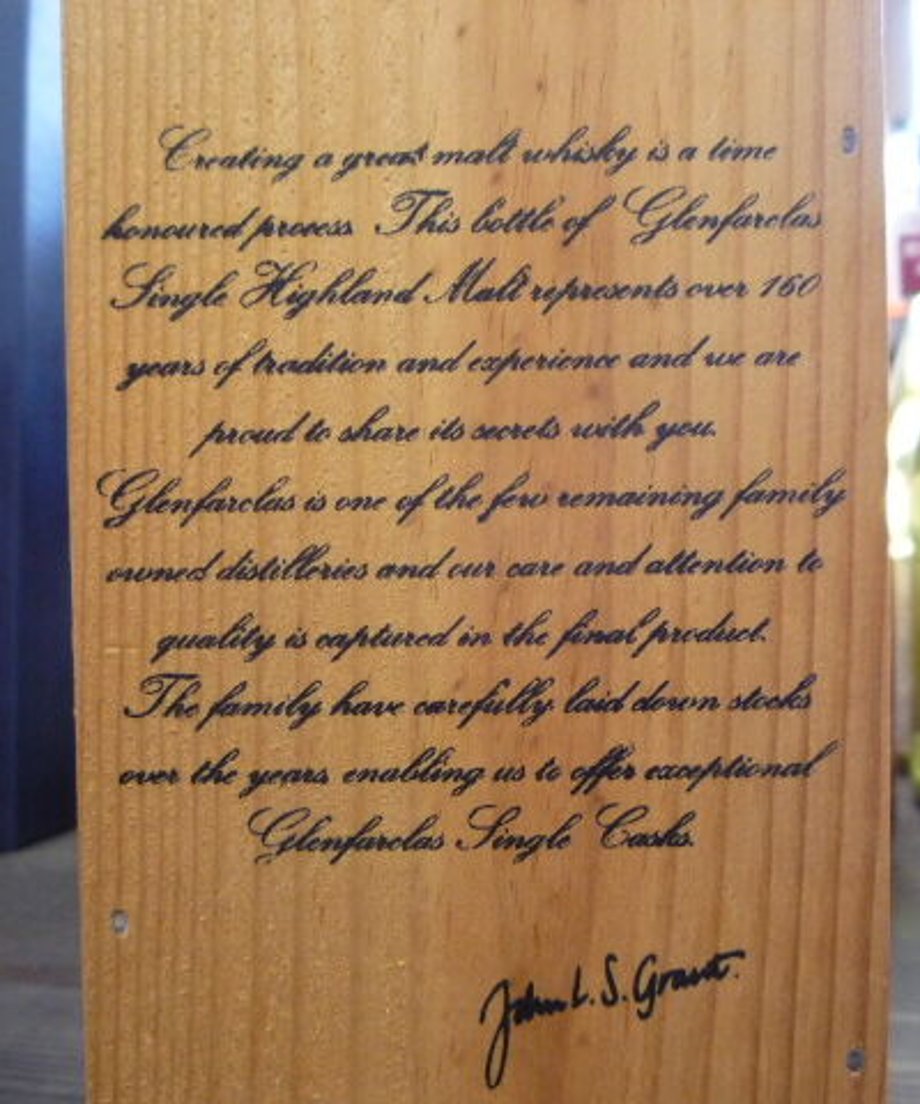 Creating a great malt whisky is a time
honoured process. This bottle of Glenfarclas
Single Highland Malt represents over 160
years of tradition and experience and we are
proud to share its secrets with you.
Glenfarclas is one of the few remaining family
owned distilleries and our care and attention to
quality is captured in the final product.
The family have carefully laid down stocks
over the years, enabling us to offer exceptional
Glenfarclas Single Casks.
John L. S. Grant.